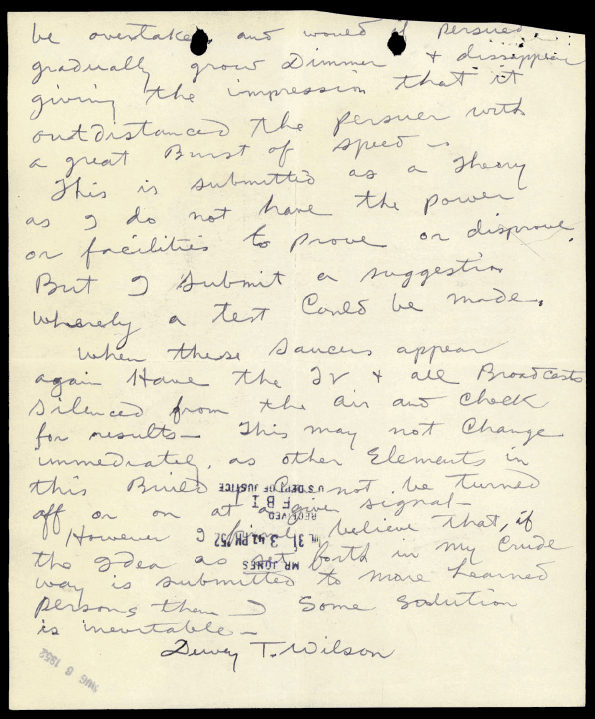 be overtaken and would if persued
gradually grow Dimmer & dissappear
giving the impression that it
outdistanced the persuer with
a great Burst of speed -
This is submitted as a Theory
as I do not have the power
or facilities to prove or disprove.
But I submit a suggestion
whereby a test Could be made.
When these saucers appear
again Have the TV & all Broadcasts
silenced from the air and check
for results - This may not Change
immediately, as other Elements in
this Build not be turned
off or on at a given signal -
However I firmly believe that, if
the Idea as set forth in my Crude
way is submitted to more Learned
persons than I Some solution
is inevitable -
Dewey T. Wilson
MR JONES
JUL 31 3 42 PM '52
RECEIVED
F B I
U S DEPT OF JUSTICE
AUG 6 1952